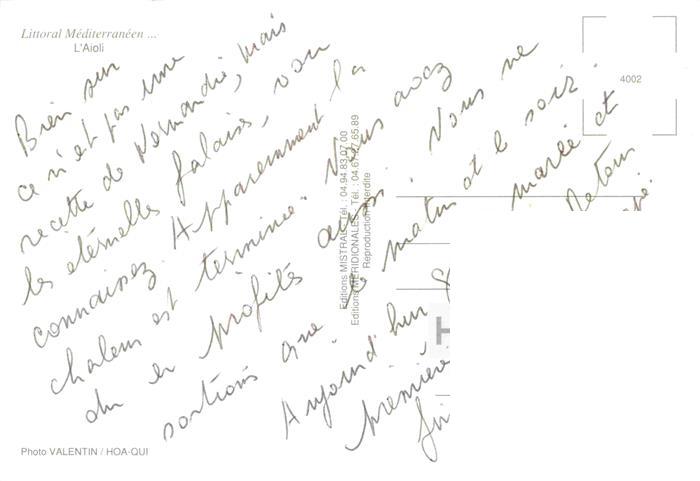 Littoral Méditerranéen ...
L'Aioli
4002
Bien sur
ce n'est pas une
recette de Normandie, mais
les éternelles falaises, vous
connaissez. Apparemment la
chaleur est terminée. Vous avez
du en profités aussi. Vous ne
sortions que le matin et le soir.
Aujourd'hui marée et
première
Retour
Editions MISTRAL - Tél. : 04.94.83.07.00
Editions MERIDIONALES - Tél. : 04.67.27.65.89
Reproduction interdite
Photo VALENTIN / HOA-QUI